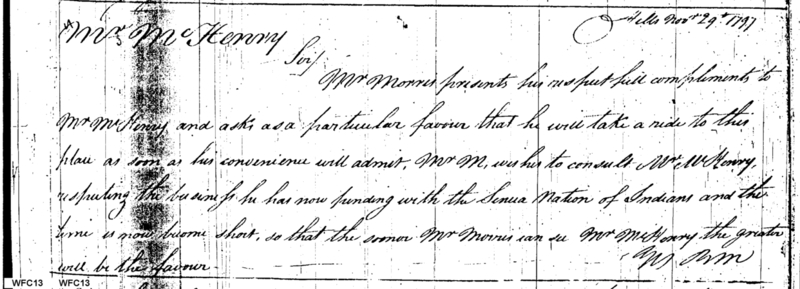 Hills Novr 29th 1797
Mr. Mc Henry
Sir/
Mr Morris presents his respectfull compliments to
Mr McHenry and asks as a particular favour that he will take a ride to this
place as soon as his convenience will admit. Mr M, wishes to consult Mr McHenry
respecting the business he has now pending with the Seneca Nation of Indians and the
time is now become short, so that the sooner Mr Morris can see Mr McHenry the greater
will be the favour.
RM
WFC13 WFC13